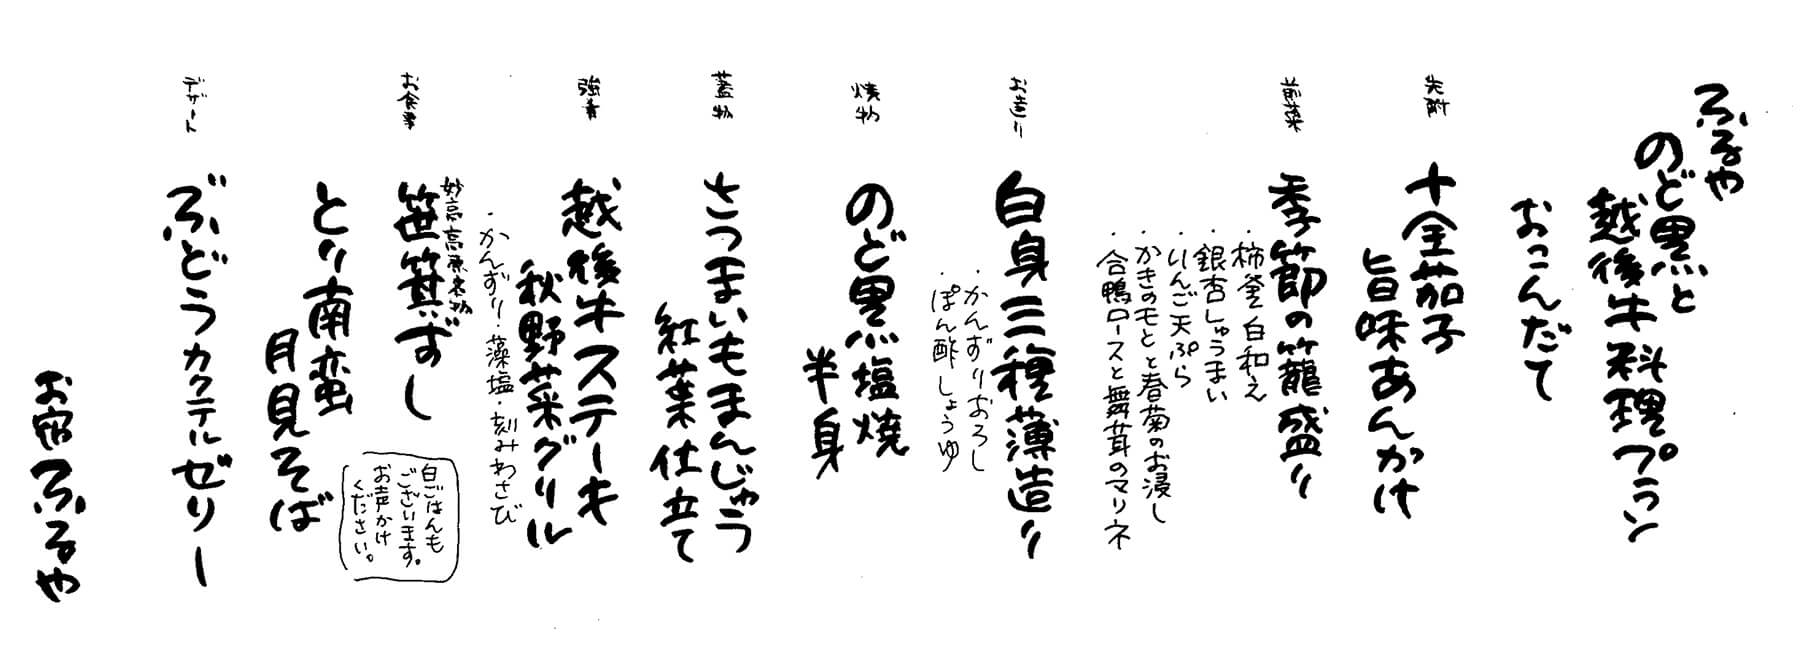 ふるや
のど黒と
越後牛料理プラン
おこんだて
先酎
十全茄子
旨味あんかけ
前菜
季節の籠盛り
・柿釜白和え
・銀杏しゅうまい
・りんご天ぷら
・かきのもとと春菊のお浸し
・合鴨ロースと舞茸のマリネ
お造り
白身三種薄造り
・かんずりおろし
・ぽん酢しょうゆ
焼物
のど黒塩焼
半身
蓋物
さつまいもまんじゅう
紅葉仕立て
強肴
越後牛ステーキ
秋野菜グリル
・かんずり・藻塩・刻みわさび
お食事
妙高高原名物
笹箕ずし
とり南蛮
月見そば
白ごはんも
ございます。
お声かけ
ください。
デザート
ぶどうカクテルゼリー
お宿ふるや